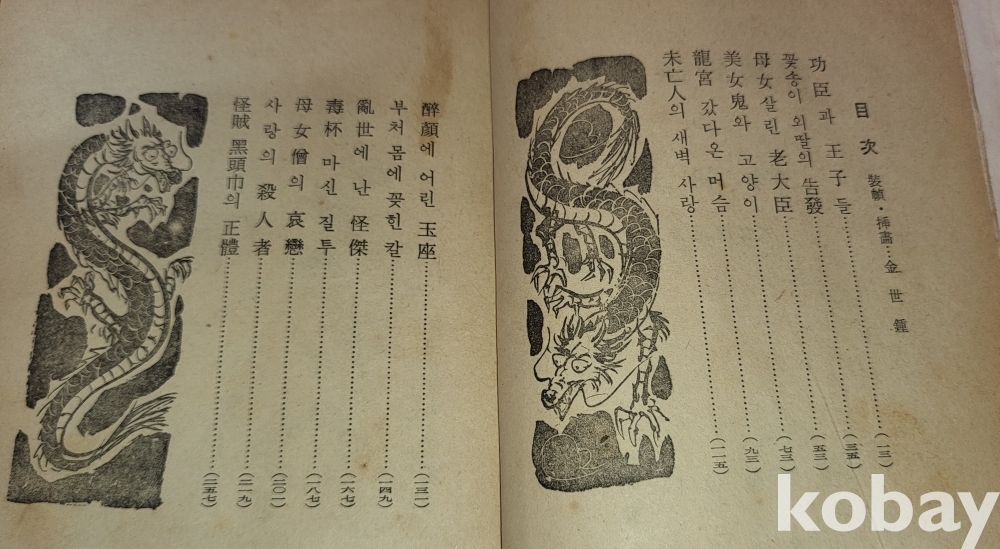 目次
裝幀·揷畵 金世鍾
功臣과 王子들 (一三)
꽃송이 외딸의 告發 (三五)
母女살린 老大臣 (五三)
美女鬼와 고양이 (七三)
龍宮 갔다온 머슴 (九三)
未亡人의 새벽 사랑 (一一五)
醉顔에 어린 玉座 (一三一)
부처 몸에 꽂힌 칼 (一四九)
亂世에 난 怪傑 (一六七)
毒杯 마신 질투 (一八七)
母女僧의 哀戀 (二〇一)
사랑의 殺人者 (二一九)
怪賊 黑頭巾의 正體 (二五七)
kobay